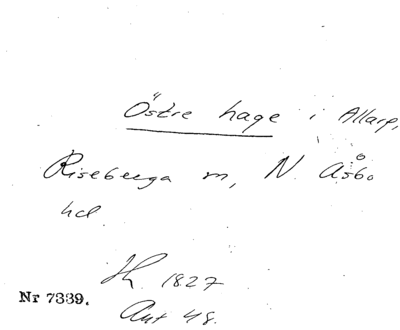 Östre hage i Allarp,
Riseberga sn, N. Åsbo
hd.
Lh. 1827
Nr 7339.
Ant 48.